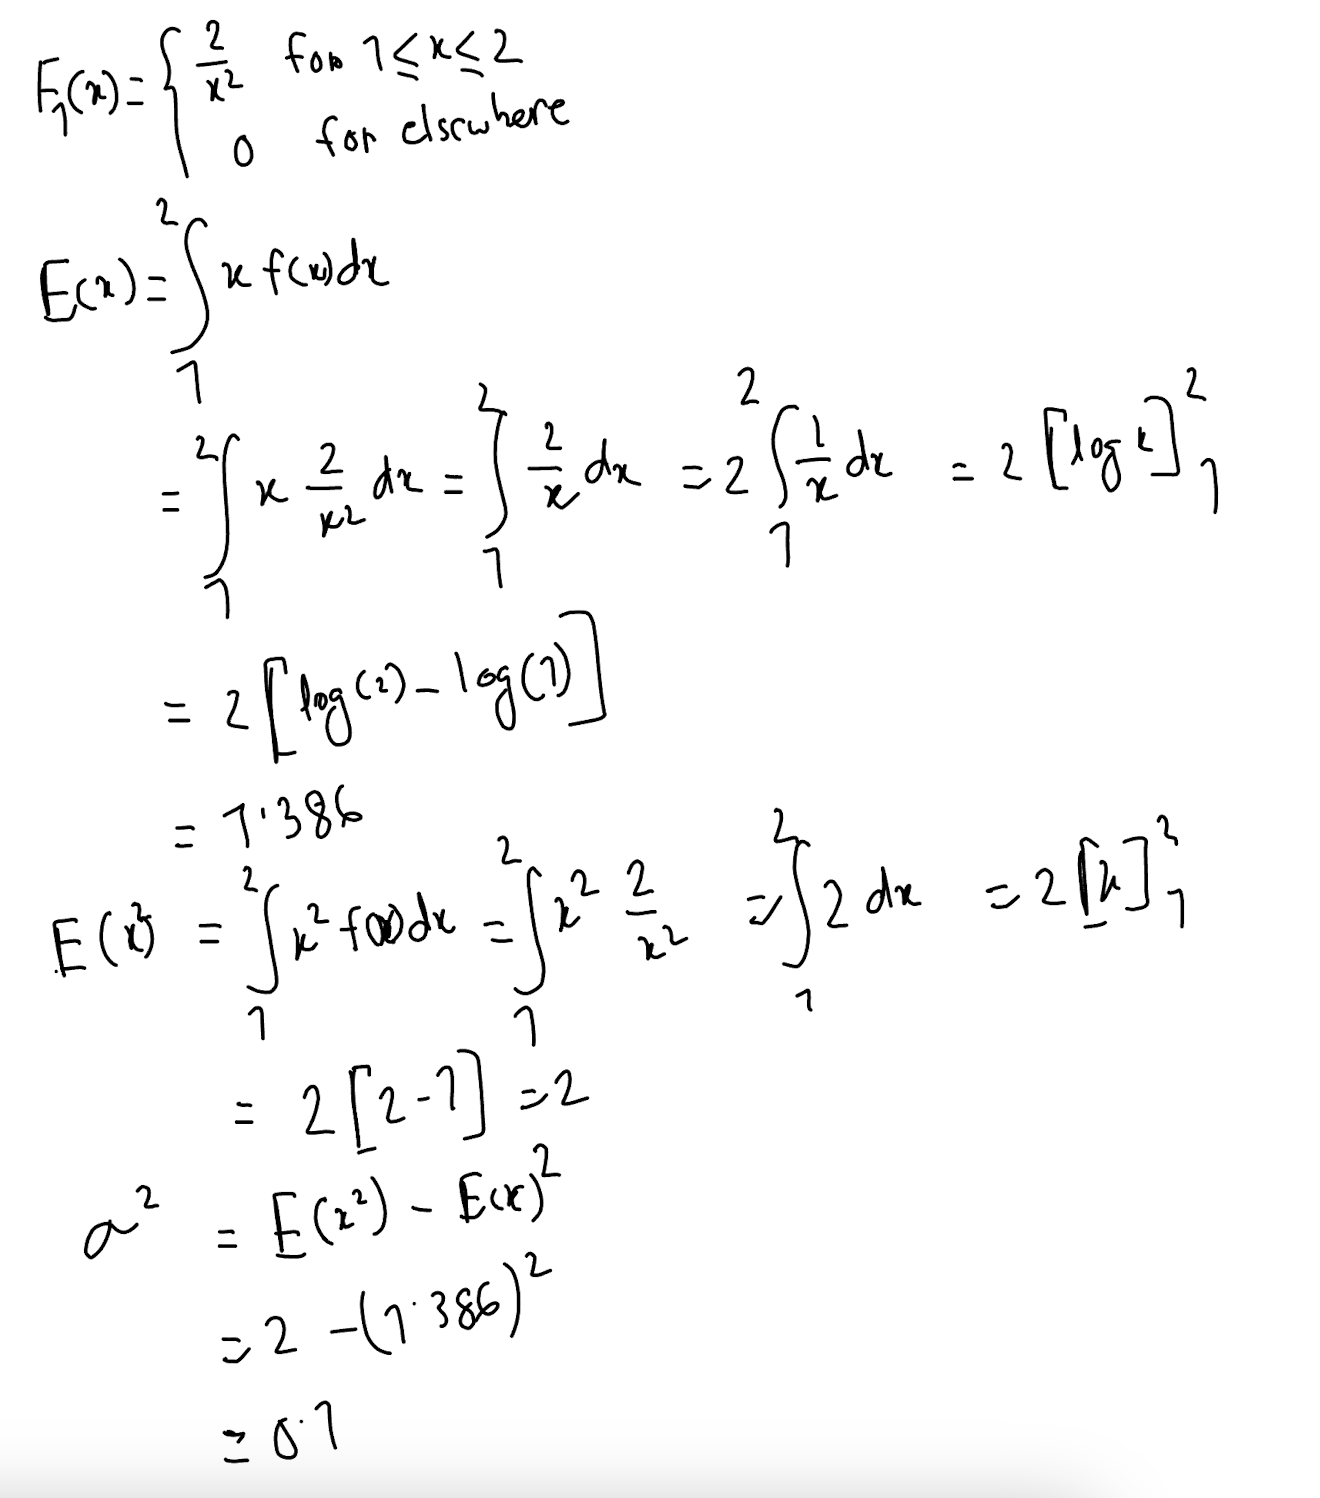 F₁(x) = { 2/x² for 1 ≤ x ≤ 2
0 for elsewhere
E(x) = ∫₁² x f(x) dx
= ∫₁² x 2/x² dx = ∫₁² 2/x dx = 2 ∫₁² 1/x dx = 2 [log x]₁²
= 2 [log(2) - log(1)]
= 1.386
E(x²) = ∫₁² x² f(x) dx = ∫₁² x² 2/x² = ∫₁² 2 dx = 2 [x]₁²
= 2 [2-1] = 2
a² = E(x²) - E(x)²
= 2 - (1.386)²
= 0.1